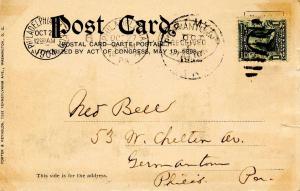 Post Card
(POSTAL CARD-CARTE POSTALE)
BY ACT OF CONGRESS, MAY 19, 1898
PHILADELPHIA
OCT 2
PA.
RECEIVED
Ned Bell
53 W. Chelten av.
Germantown
Phila Pa.
This side is for the address.